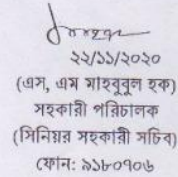 ২২/১১/২০২০
(এস, এম মাহবুবুল হক)
সহকারী পরিচালক
(সিনিয়র সহকারী সচিব)
ফোন: ৯১৮০৭০৬